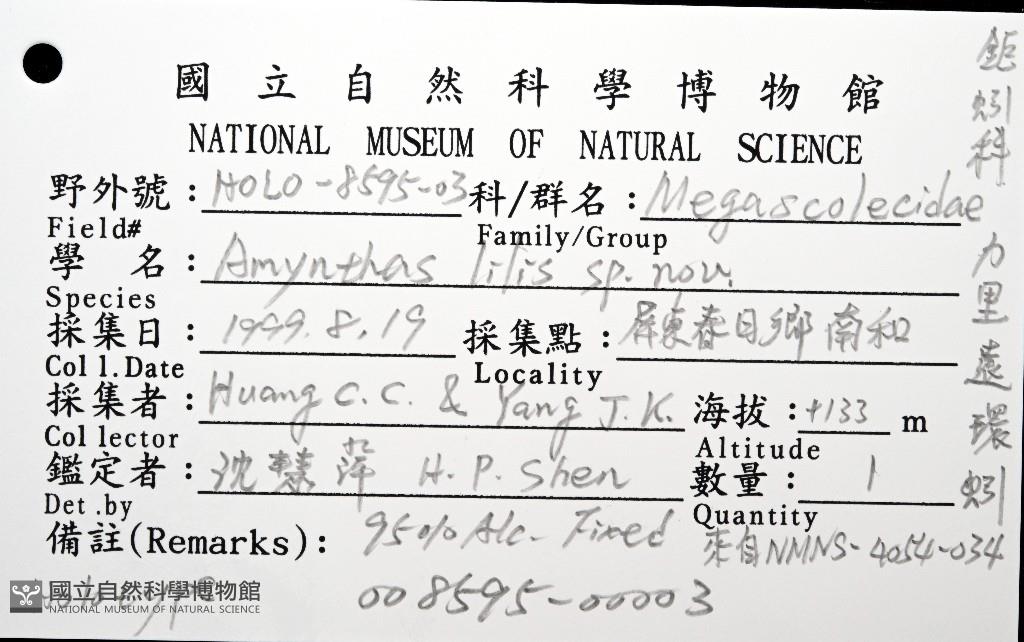 國立自然科學博物館
NATIONAL MUSEUM OF NATURAL SCIENCE
野外號：HOLO-8595-03 科/群名：Megascolecidae
Field# Family/Group
學名：Amynthas lilis sp. nov.
Species
採集日：1999.8.19 採集點：屏東春日鄉南和
Coll.Date Locality
採集者：Huang C.C. & Yang J.K. 海拔：+133 m
Collector Altitude
鑑定者：沈慧萍 H.P. Shen 數量：1
Det.by Quantity
備註(Remarks)： 95% Alc. Fixed 來自NMNS-4054-034
008595-00003
鉅蚓科 力里遠環蚓
國立自然科學博物館
NATIONAL MUSEUM OF NATURAL SCIENCE